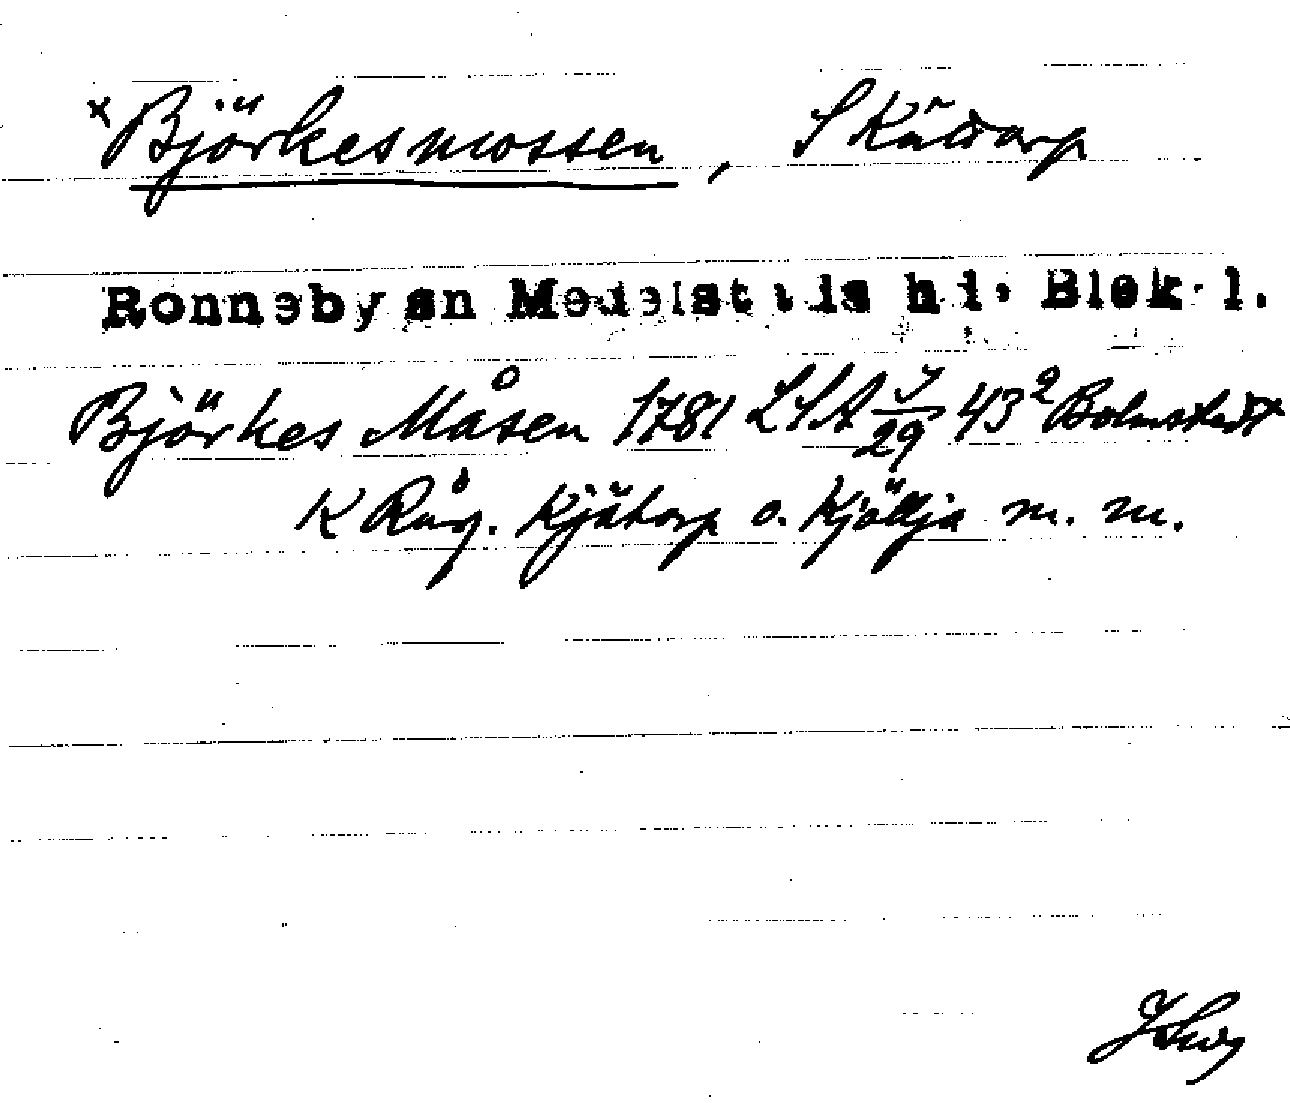 x Björkesmossen, S Kätorp
Ronneby sn Medelstads hd. Blek. l.
Björkes Måsen 1781 LSA J/29 43² Bolmstedt
K Råg. Kjätorp o. Kjöllja m. m.